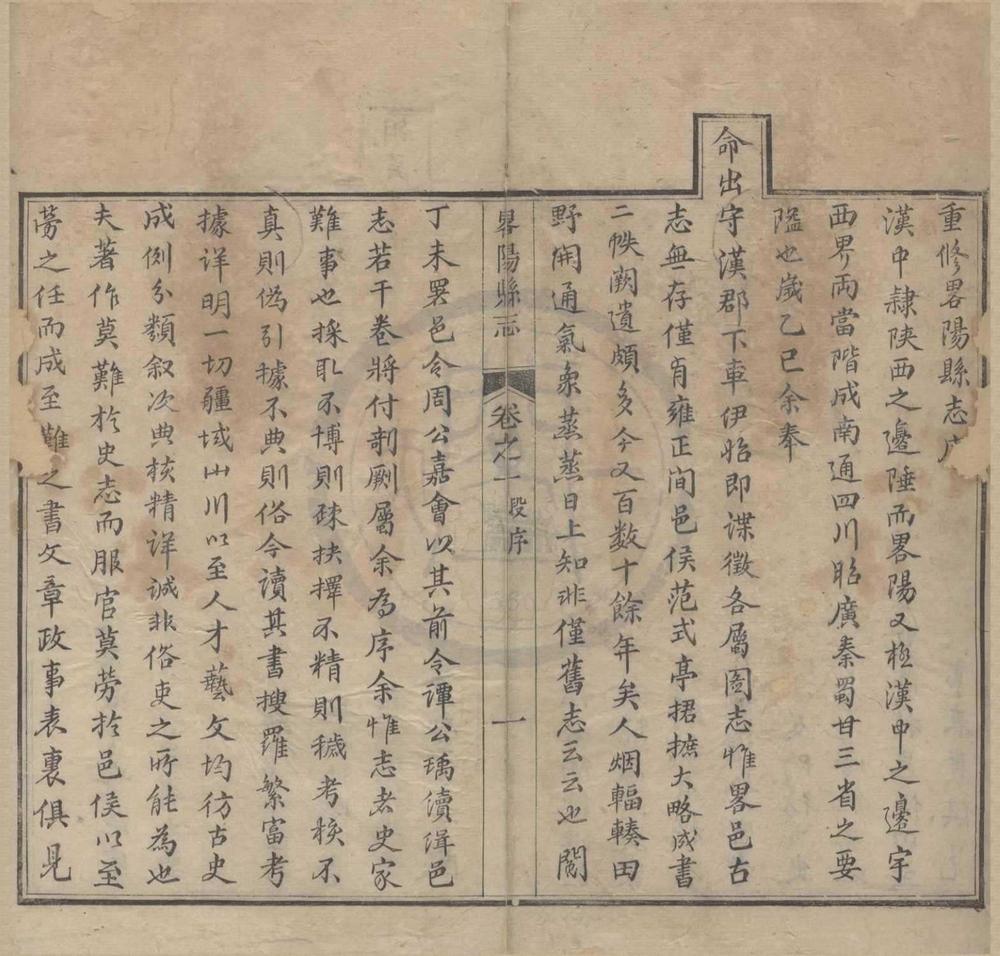 重修畧陽縣志序
漢中隸陝西之邊陲而畧陽又極漢中之邊宇
西界兩當階成南通四川昭廣秦蜀甘三省之要
隘也歲乙巳余奉
命出守漢郡下車伊始即諜徵各屬圖志惟畧邑古
志無存僅肓雍正间邑侯范式亭捃摭大略成書
二帙闕遺頗多今又百數十餘年矣人烟輻輳田
野開通氣象蒸蒸日上知非僅舊志云云也閱
畧陽縣志
卷之一
段序
一
丁未署邑令周公嘉會以其前令譚公瑀續緝邑
志若干卷將付剞劂屬余為序余惟志者史家
難事也採取不博則疎抉擇不精則穢考核不
真則僞引據不典則俗今讀其書搜羅繁富考
據详明一切疆域山川以至人才藝文均彷古史
成例分類叙次典核精详誠非俗吏之所能為也
夫著作莫難於史志而服官莫勞於邑侯以至
勞之任而成至難之書文章政事表裏俱見